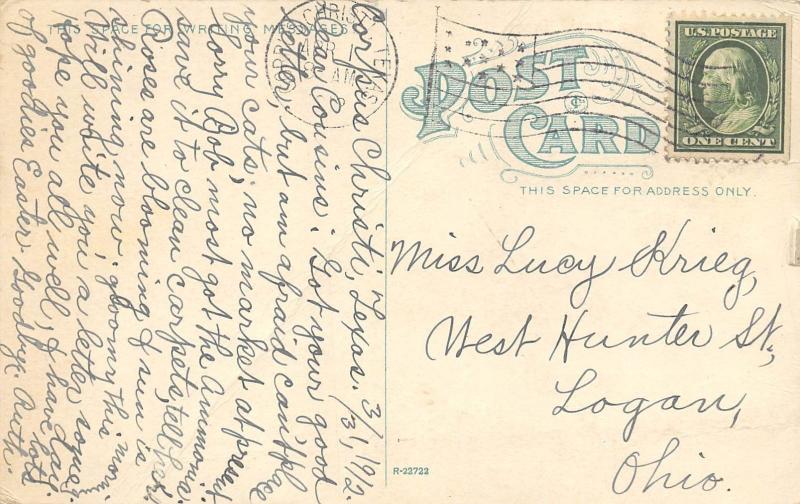 THIS SPACE FOR WRITING MESSAGES
CORPUS CHRISTI TEXAS
APR
AM
POST
CARD
U.S. POSTAGE
ONE CENT
THIS SPACE FOR ADDRESS ONLY.
Corpus Christi, Texas. 3/31, 1912.
Dear Cousins: Got your good
letter, but am afraid can't place
your cats, no market at present
Sorry Bob most got the ammonia
save it to clean carpets, tell
Roses are blooming & sun is
shining now: gloomy this morn
Will write you, a letter
hope you all well, & have lots
of goodies Easter. Goodbye. Ruth.
Miss Lucy Krieg,
West Hunter St,
Logan,
Ohio.
R-22722